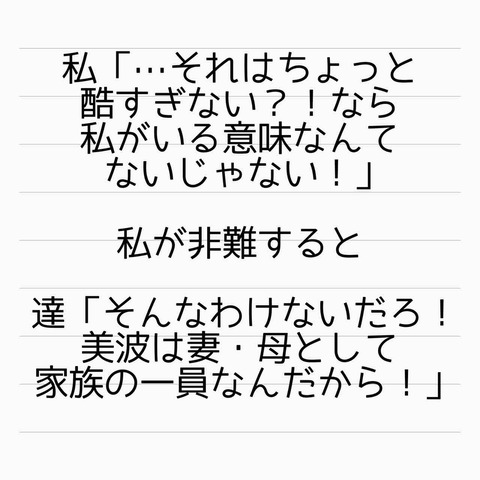 私「…それはちょっと
酷すぎない？！なら
私がいる意味なんて
ないじゃない！」
私が非難すると
達「そんなわけないだろ！
美波は妻・母として
家族の一員なんだから！」